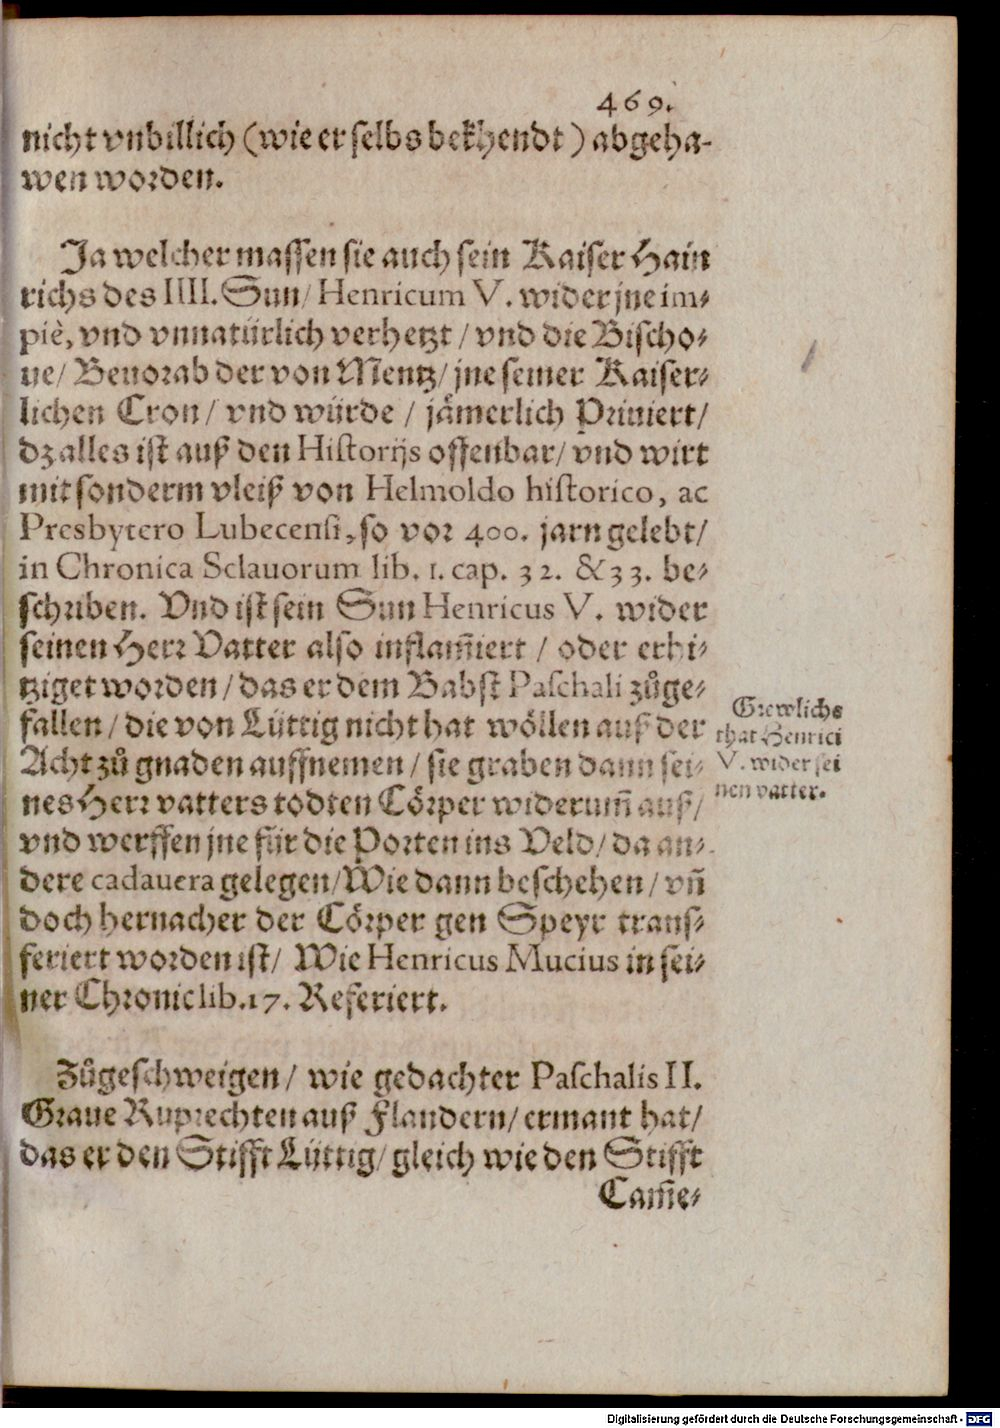 469.
nicht vnbillich (wie er selbs bekhendt) abgeha-
wen worden.
Ja welcher massen sie auch sein Kaiser Hain
richs des IIII. Sun/ Henricum V. wider jne im-
piè, vnd vnnatürlich verhetzt / vnd die Bischo-
ue/ Beuorab der von Mentz/ jne seiner Kaiser-
lichen Cron/ vnd würde / jämerlich Priuiert/
dz alles ist auß den Historijs offenbar/ vnd wirt
mit sonderm vleiß von Helmoldo historico, ac
Presbytero Lubecensi, so vor 400. jarn gelebt/
in Chronica Sclauorum lib. 1. cap. 32. & 33. be-
schriben. Vnd ist sein Sun Henricus V. wider
seinen Herr Vatter also inflam̃iert / oder erhi-
tziget worden / das er dem Babst Paschali zůge-
fallen / die von Lüttig nicht hat wöllen auß der
Acht zů gnaden auffnemen / sie graben dann sei-
nes Herr vatters todten Cörper widerum̃ auß/
vnd werffen jne für die Porten ins Veld/ da an-
dere cadauera gelegen/ Wie dann beschehen / vñ
doch hernacher der Cörper gen Speyr trans-
feriert worden ist/ Wie Henricus Mucius in sei-
ner Chronic lib. 17. Referiert.
Grewlichs
that Henrici
V. wider sei
nen vatter.
Zůgeschweigen/ wie gedachter Paschalis II.
Graue Ruprechten auß Flandern/ ermant hat/
das er den Stifft Lüttig/ gleich wie den Stifft
Cam̃e-
Digitalisierung gefördert durch die Deutsche Forschungsgemeinschaft - DFG